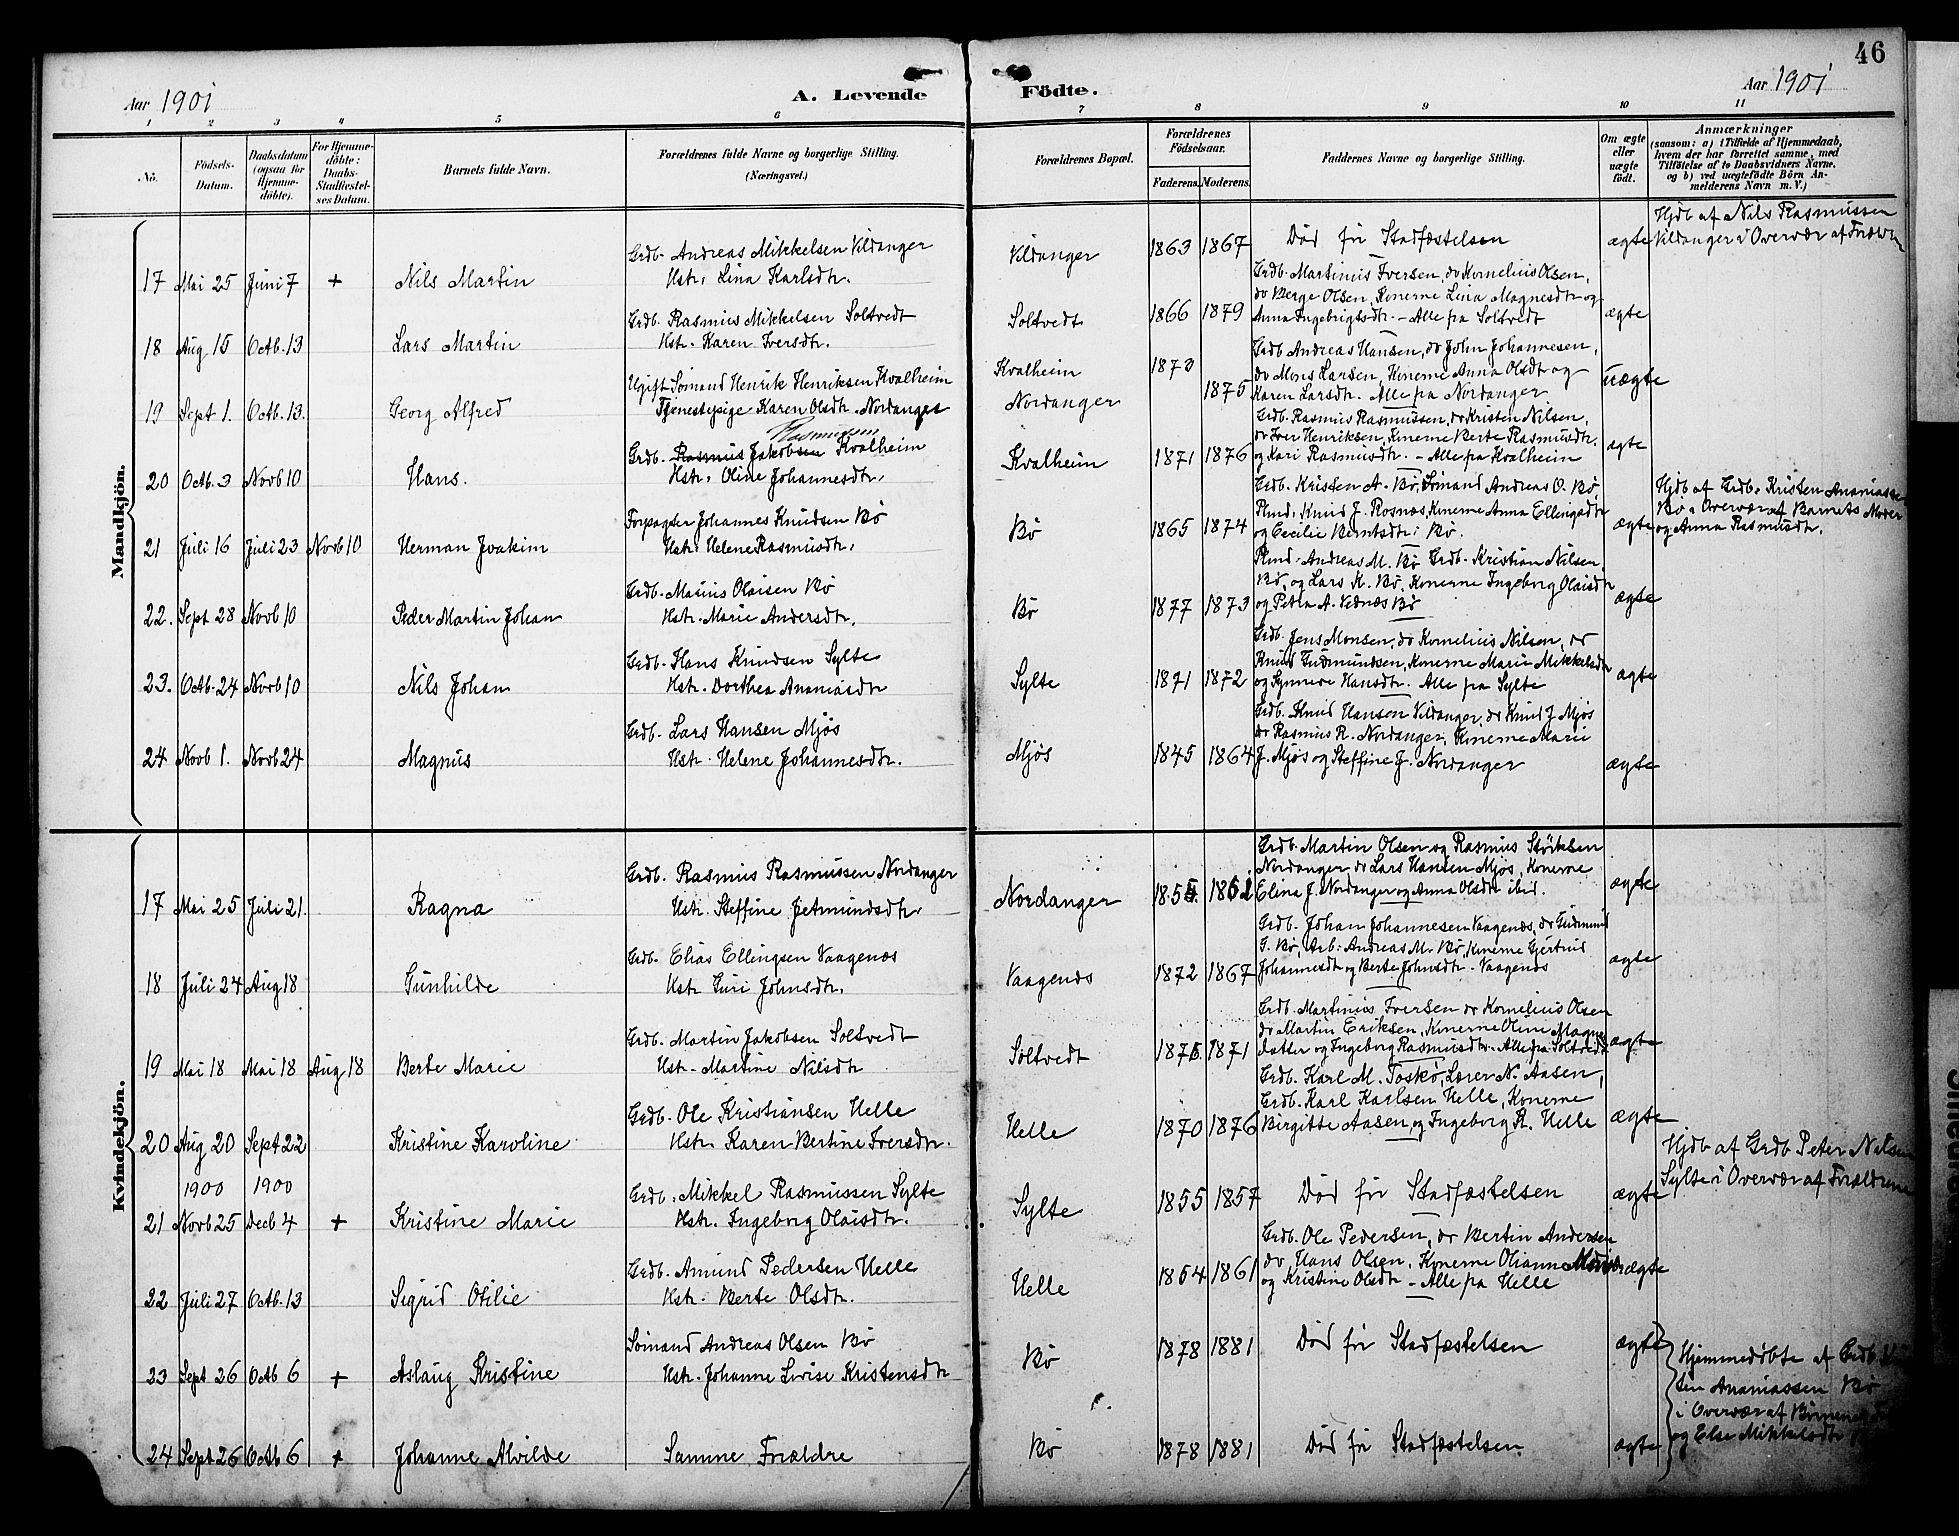 46
Aar 1901
A. Levende Födte.
Aar 1901
1 2 3 4 5 6 7 8 9 10 11
No.
Födsels-Datum.
Daabsdatum (ogsaa for Hjemme-döbte).
For Hjemme-döbte: Daabs-Stadfæstel-ses Datum.
Barnets fulde Navn.
Forældrenes fulde Navne og borgerlige Stilling. (Næringsvei.)
Forældrenes Bopæl.
Forældrenes Födselsaar.
Faderens. Moderens.
Faddernes Navne og borgerlige Stilling.
Om ægte eller uægte født.
Anmærkninger
(saasom: a) i Tilfælde af Hjemmedaab,
hvem der har forrettet samme, med
Tilföielse af to Daabsvidners Navne,
og b) ved uægtefödte Börn An-
melderens Navn m. V.)
Mandkjön.
17 Mai 25 Juni 7 + Nils Martin
Grdb. Andreas Mikkelsen Vildanger
Hstr. Lina Karlsdtr.
Vildanger 1863 1867 Död før Stadfæstelsen ægte
Hjdb af Nils Rasmussen
Vildanger i Overvær af
18 Aug 15 Octb. 13 Lars Martin
Grdb. Rasmus Mikkelsen Soltvedt
Hstr. Karen Iversdtr.
Soltvedt 1866 1879
Grdb. Martinus Iversen, do Kornelius Olsen,
do Berge Olsen, Konerne Lina Magnesdtr og
Anna Ingebrigtsdtr. - Alle fra Soltvedt
ægte
19 Sept 1. Octb. 13. Georg Alfred
Ugift Sømand Henrik Henriksen Kvalheim
Tjenestepige Karen Olsdtr. Nordanger
Kvalheim 1873
Nordanger 1875
Grdb Andreas Hansen, do John Johannesen,
do Mons Larsen, Konerne Anna Olsdt og
Karen Larsdtr. Alle fra Nordanger
uægte
20 Octb. 3 Novb 10 Hans.
Rasmussen
Grdb. Rasmus Jakobsen Kvalheim
Hstr. Oline Johannesdtr.
Kvalheim 1871 1876
Grdb. Rasmus Rasmussen, do Kristen Nilsen,
do Iver Henriksen, Konerne Berte Rasmusdtr.
og Kari Rasmusdtr. - Alle fra Kvalheim
ægte
21 Juli 16 Juli 23 Novb 10 Herman Joakim
Forpagter Johannes Knudsen Bø
Hstr. Helene Rasmusdtr.
Bø 1865 1874
Grdb. Kristen A. Bø, Sömand Andreas O. Bø,
Knud J. Rosnæs, Konerne Anna Ellingsdtr
og Cecilie Berntsdtr. Bø.
ægte
Hjdb af Grdb. Kristen Ananiassen
Bø i Overvær af Barnets Moder
og Anna Rasmusdtr.
22. Sept 28 Novb 10 Peder Martin Johan
Grdb. Marius Olaisen Bø
Hstr. Marie Andersdtr.
Bø 1877 1873
Andreas M. Bø Grdb. Kristian Nilsen
Bø, og Lars K. Bø, Konerne Ingeborg Olaisdtr
og Petra A. Vednæs Bø
ægte
23. Octb. 24 Novb 10 Nils Johan
Grdb. Hans Knudsen Sylte
Hstr. Dorthea Ananiasdtr
Sylte 1871 1872
Grdb. Jens Monsen, do Kornelius Nilsen, do
Knud Gudmundsen, Konerne Marie Mikkelsdtr
og Synneve Hansdtr. Alle fra Sylte
ægte
24 Novb 1. Novb 24 Magnus
Grdb. Lars Hansen Mjøs
Hstr. Helene Johannesdtr.
Mjøs 1845 1864
Grdb. Knud Hansen Vildanger, do Knud J Mjøs
do Rasmus R. Nordanger, Konerne Marie
J. Mjøs og Steffine J. Nordanger
ægte
Kvindekjön.
17 Mai 25 Juli 21. Ragna
Grdb. Rasmus Rasmussen Nordanger
Hstr. Steffine Jetmundsdtr.
Nordanger
Grdb. Martin Olsen og Rasmus Størksen
Nordanger do Lars Hansen Mjøs, Konerne
Elina J. Nordanger og Anna Olsdtr ibid.
ægte
18 Juli 24 Aug 18 Gunhilde
Grdb. Elias Ellingsen Vaagenæs
Hstr Guri Johnsdtr.
Vaagenæs 1872 1867
Grdb. Johan Johannesen Vaagenæs, do Gudmund
G. Bø, Arb: Andreas M. Bø, Konerne Gjertrud
Johannesdt og Berte Johnsdtr. Vaagenæs
ægte
19 Mai 18 Mai 18 Aug 18 Berte Marie
Grdb. Martin Jakobsen Soltvedt
Hstr - Martine Nilsdtr
Soltvedt 1871
Grdb. Martinus Iversen do Kornelius Olsen
do Martin Eriksen, Konerne Oline Magne
datter og Ingeborg Rasmusdtr. Alle fra Soltvedt
ægte
20 Aug 20 Sept 22 Kristine Karoline
Grdb. Ole Kristiansen Helle
Hstr. Karen Bertine Iversdtr.
Helle 1870 1876
Grdb. Karl M. Toskø, Lærer N. Aasen,
Grdb. Karl Karlsen Helle, Konerne
Birgitte Aasen og Ingeborg K. Helle
ægte
1900 1900
21 Novb 25 Decb 4 + Kristine Marie
Grdb. Mikkel Rasmussen Sylte
Hstr. Ingeborg Olaisdtr.
Sylte 1855 1857 Död før Stadfæstelsen ægte
Hjdb af Grdb Peter Nilsen
Sylte i Overvær af Forældrene
22 Juli 27 Octb. 13 Sigrid Otilie
Grdb. Amund Pedersen Helle
Hstr. Berte Olsdtr.
Helle 1854 1861
Grdb. Ole Pedersen, do Bertin Andersen
do Hans Olsen, Konerne Olianne
og Kristine Olsdtr - Alle fra Helle
ægte
23 Sept 26 Octb 6 + Aslaug Kristine
Sømand Andreas Olsen Bø
Hstr. Johanne Lovise Kristensdtr
Bø 1878 1881 Död før Stadfæstelsen ægte
Hjemmedöbte af Grdb
Ananiassen Bø
i Overvær af
og Else Mikkelsdtr
24 Sept 26 Octb 6 + Johanne Alvilde
Samme Forældre
Bø 1878 1881 Död før Stadfæstelsen ægte